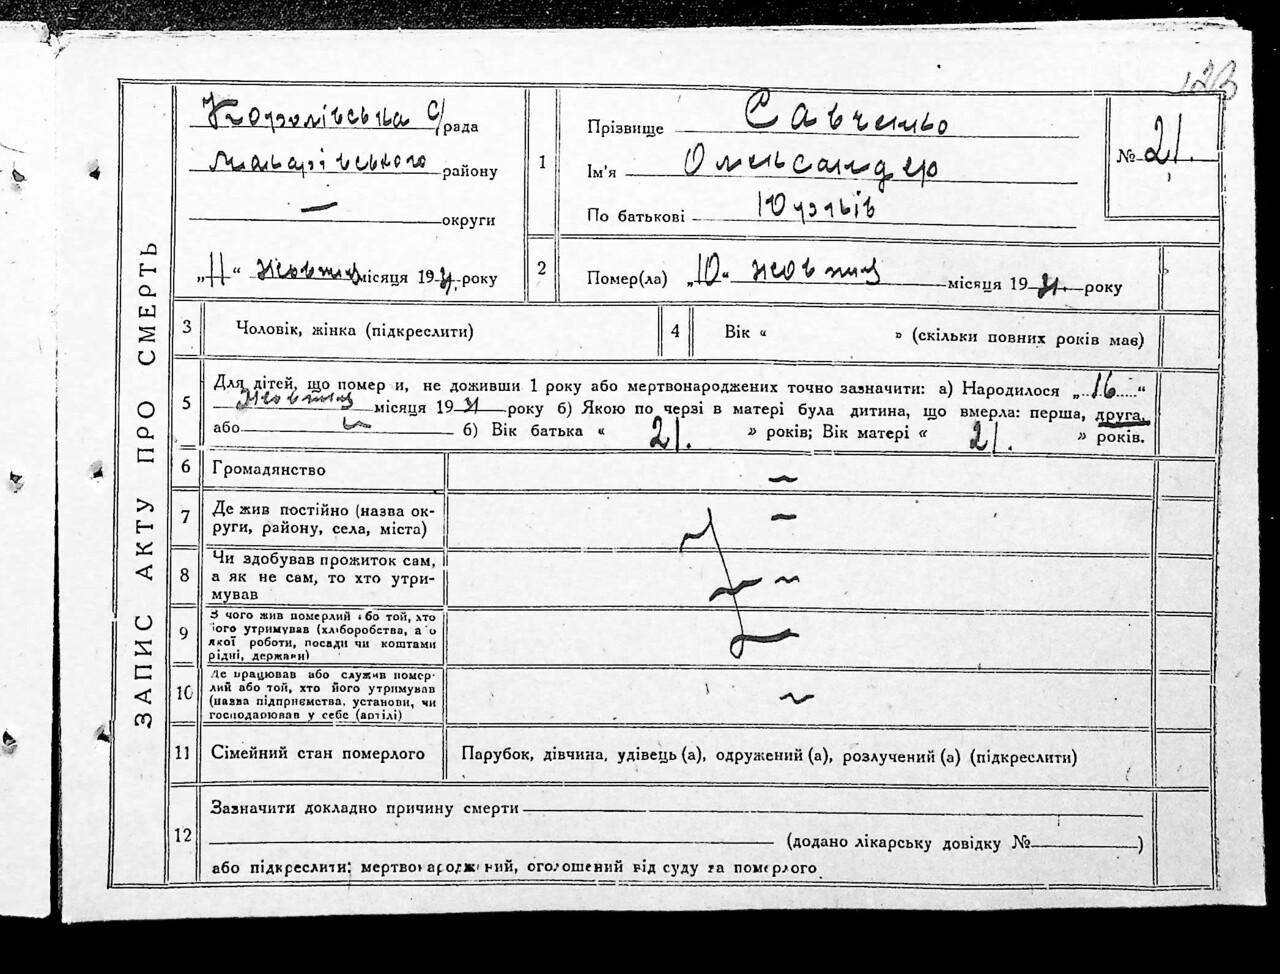 123
ЗАПИС АКТУ ПРО СМЕРТЬ
Королівська с/рада
Макарівського району
— округи
„11“ жовтня місяця 1931 року
1
Прізвище Савченко
Ім'я Олександер
По батькові
№ 21.
2
Помер(ла) „10“ жовтня місяця 1931. року
3 Чоловік, жінка (підкреслити)
4 Вік « » (скільки повних років мав)
5
Для дітей, що помер и, не доживши 1 року або мертвонароджених точно зазначити: а) Народилося „16“
жовтня місяця 1931 року б) Якою по черзі в матері була дитина, що вмерла: перша, друга,
або — б) Вік батька « 21. » років; Вік матері « 21. » років.
6 Громадянство —
7 Де жив постійно (назва ок-
руги, району, села, міста) —
8 Чи здобував прожиток сам,
а як не сам, то хто утри-
мував —
9 З чого жив померлий або той, хто
його утримував (хліборобства, а о
якої роботи, посади чи коштами
рідні, держави)
10 Де працював або служив помер-
лий або той, хто його утримував
(назва підприємства, установи, чи
господарював у себе (артілі) —
11 Сімейний стан померлого Парубок, дівчина, удівець (а), одружений (а), розлучений (а) (підкреслити)
12
Зазначити докладно причину смерти
(додано лікарську довідку № )
або підкреслити: мертвонароджений, оголошений від суду за померлого